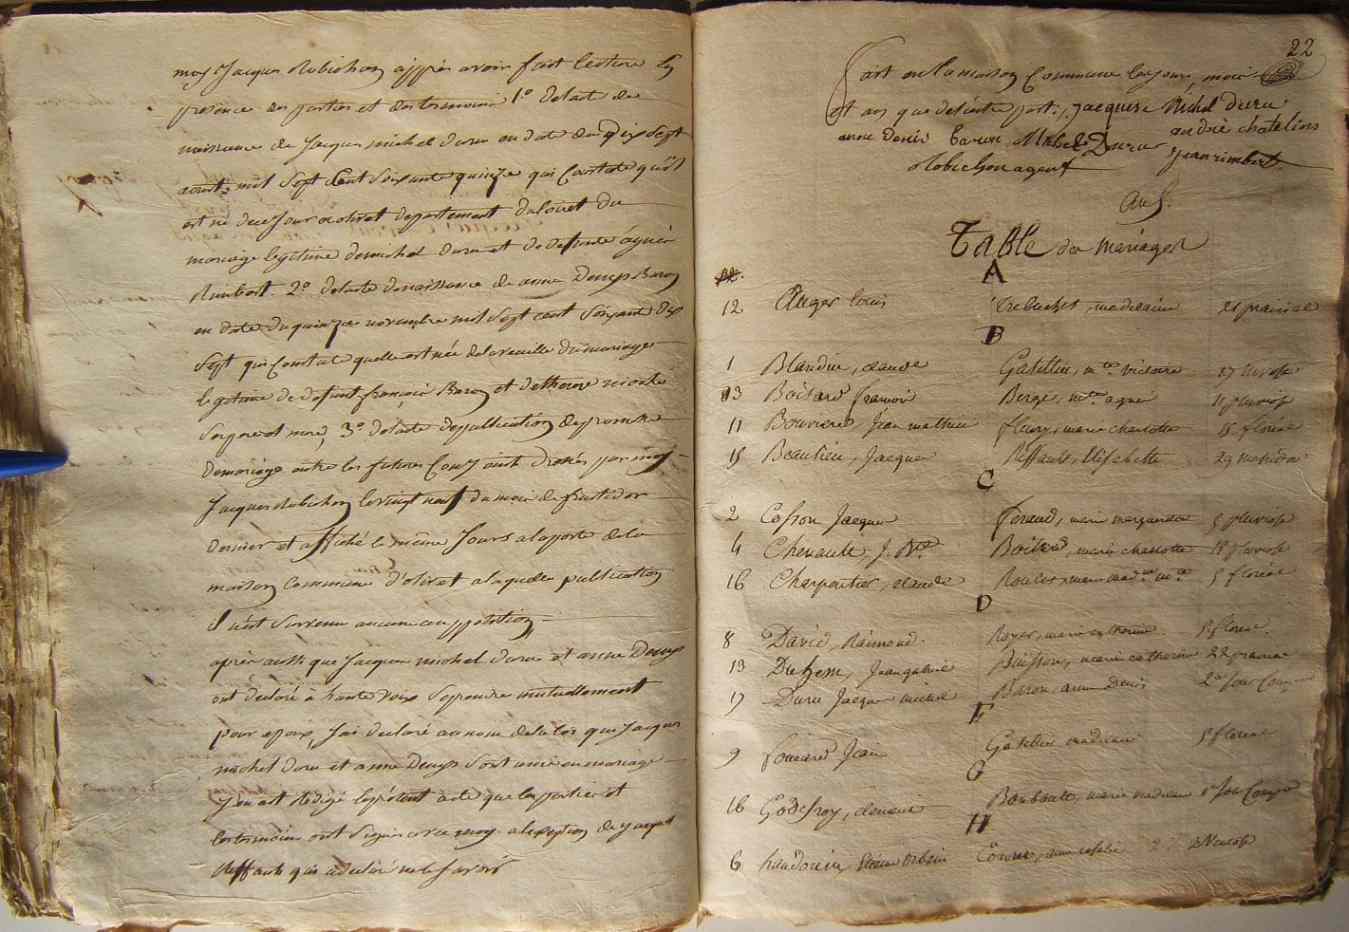 moy Jacques Robichon apprès avoir fait lecture En
presence des parties et des temoins 1o de lacte de
naissance de Jacques michel duru en date du Dix Sept
aoust mil Sept Cent Soixante quinze qui Constate qu'il
est né de ce jour a olivet departement du loiret du
mariage legitime de michel duru et de defunte agnès
Rimbert. 2o de lacte de naissance de anne Denys Baron
en date du quinze novembre mil Sept cent Soixante Dix
Sept qui Constate quelle est née de la veille du mariage
legitime de defunt françois Baron et de therese nicole
3o de lacte de publication de promesse
de mariage entre les futures Conjoints Dressés par moy
Jacques Robichon le vingt neuf du mois de fructidor
dernier et affiché le même Jours a la porte de la
maison Commune d'olivet a laquelle publication
il n'est Survenu aucune oppotition
après aussi que Jacques michel duru et anne Denys
ont declaré à haute voix Se prendre mutuellement
pour epoux, J'ai declaré au nom de la loi que Jacques
michel duru et anne Denys Sont unie en mariage
J'en ait Redigé le présent acte que les parties et
les temoins ont Signés avec moy a lexeption de
Reffault qui a declaré ne le Savoir
22
fait en la maison Commune les jours, mois
et ans que delautre part. Jacques Michel duru
anne Denis Baron Michel Duru andré chatelins
Robichon agent Jean rimbert
An 5.
Table des mariages
A
12 Auger louis Trebuchet, madelaine 21 prairial
B
1 Blandin, claude Gatellier, mie victoire 27 nivose
13 Boitard françois Berge, mie agnes 11 pluviose
11 Bouvard, Jean mathieu fleury, marie charlotte 15 floréal
15 Beaulieu, Jacques Reffault, Elisabette 29 messidor
C
2 Cosson Jacques feraud, marie marguerite 5 pluviose
4 Chenault, J. Bte Boitard, marie charlotte 18 pluviose
16 Charpentier, claude 5 floréal
D
8 David, Raimond. Royer, marie catherine 1r floréal.
13 Duhem, Jean gabriel Buisson, marie catherine 22 prairial
17 Duru Jacques michel Baron, anne Denis 2e Jour Comp
F
9 fouard Jean Gatelier madelaine 1r floréal
G
16 Godefroy, clement Boubault, marie madelaine 1r Jour Comp
H
6 haudouin, Etienne Urbain